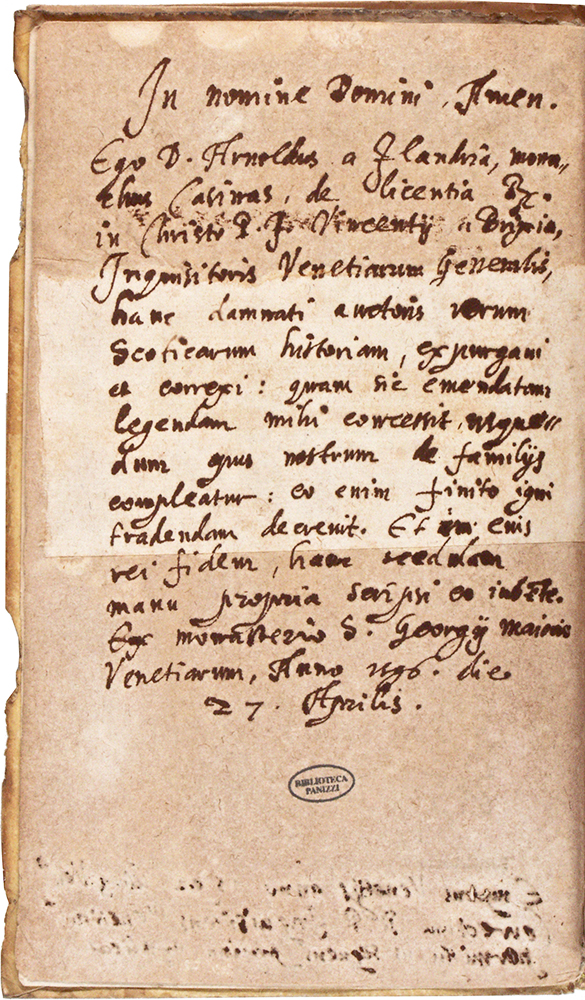 In nomine Domini, Amen.
Ego D. Arnoldus a Flandria, mona-
chus Casinas, de licentia R.
in Christo P. F. Vincentij a Brixia,
Inquisitoris Venetiarum Generalis,
hanc damnati auctoris rerum
Scoticarum historiam, expurgavi
et correxi: quam sic emendatam
legendam mihi concessit, usque-
dum opus nostrum de familijs
compleatur: eo enim finito igni
tradendam decrevit. Et in eius
rei fidem, hanc scedulam
manu propria scripsi eo iubente.
Ex monasterio S. Georgij maioris
Venetiarum, Anno 1596. die
27. Aprilis.
BIBLIOTECA
PANIZZI